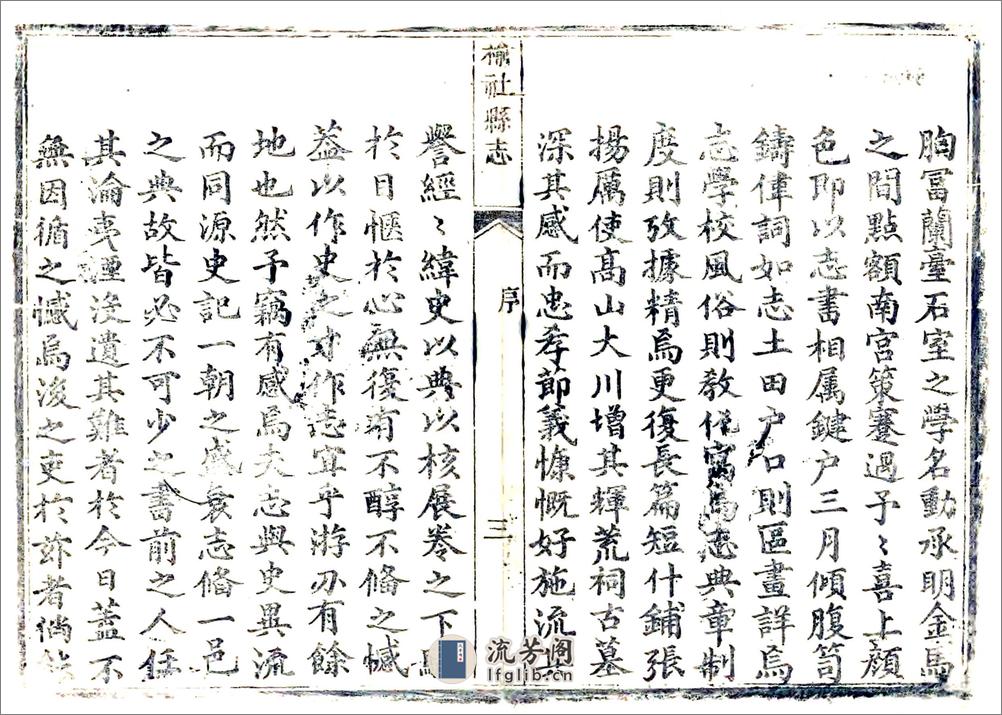 胸冨蘭臺石室之學名動承明金馬
之間點額南宮策蹇遇予〻喜上顔
色即以志書相属鍵户三月傾腹笥
鑄偉詞如志土田户口則區畫詳焉
志學校風俗則敎化寓焉志典章制
度則攷據精焉更復長篇短什鋪張
揚厲使髙山大川增其輝荒祠古墓
深其感而忠孝節義慷慨好施流
榆社縣志
序
三
譽經〻緯史以典以核展卷之下
於目愜於心無復有不醇不僃之憾
葢以作史之才作志宜乎游刃有餘
地也然予竊有感焉夫志與史異流
而同源史記一朝之盛衰志僃一邑
之典故皆必不可少之書前之人任
其淪夷湮没遺其難者於今日葢不
無因循之憾焉後之吏於兹者倘
流芳阁
lfglib.cn